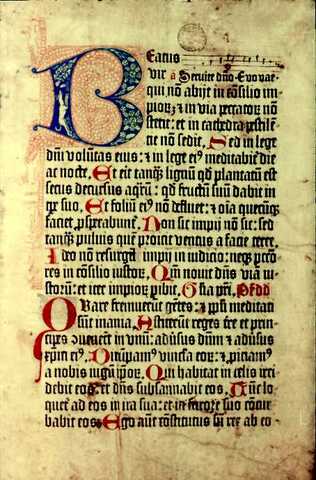 Beatus
vir ā Seruite dn̄o. Euouae.
qui nō abijt in cōsilio im
pioꝝ: ⁊ in via pcc̄atoꝝ nō
stetit: et in cathedra pestilē
tie nō sedit. Sed in lege
dn̄i volūtas eius: ⁊ in lege eiꝰ meditabit̄ die
ac nocte. Et erit tanqͣ lignū qd̓ plantatū est
secus decursus aq̄rū: qd̓ fructū suū dabit in
tp̄e suo. Et foliū eiꝰ nō defluet: ⁊ oīa quecūqꝫ
faciet ꝓsperabunt̄. Non sic impij nō sic: sed
tanqͣ puluis quē proicit ventus a facie terre.
Ideo nō resurgūt impij in iudicio: neqꝫ pctō
res in cōsilio iustoꝝ. Qm̄ nouit dn̄s viā iu
stoꝝ: et iter impioꝝ ꝑibit. Gl̓a pr̄i. Ps̄ dd
Quare fremuerūt gētes: ⁊ ppl̓i meditati
sūt inania. Astiterūt reges terre et prin
cipes ꝯuenerūt in vnū: adūsus dn̄m ⁊ adūsus
xpm̄ eiꝰ. Dirūpamꝰ vincula eoꝝ: ⁊ ꝓiciamꝰ
a nobis iugū ip̄oꝝ. Qui habitat in celis irri
debit eos: et dn̄s subsannabit eos. Tūc lo
quet̄ ad eos in ira sua: et in furore suo cōtur
babit eos. Ego aūt cōstitutus sū rex ab eo